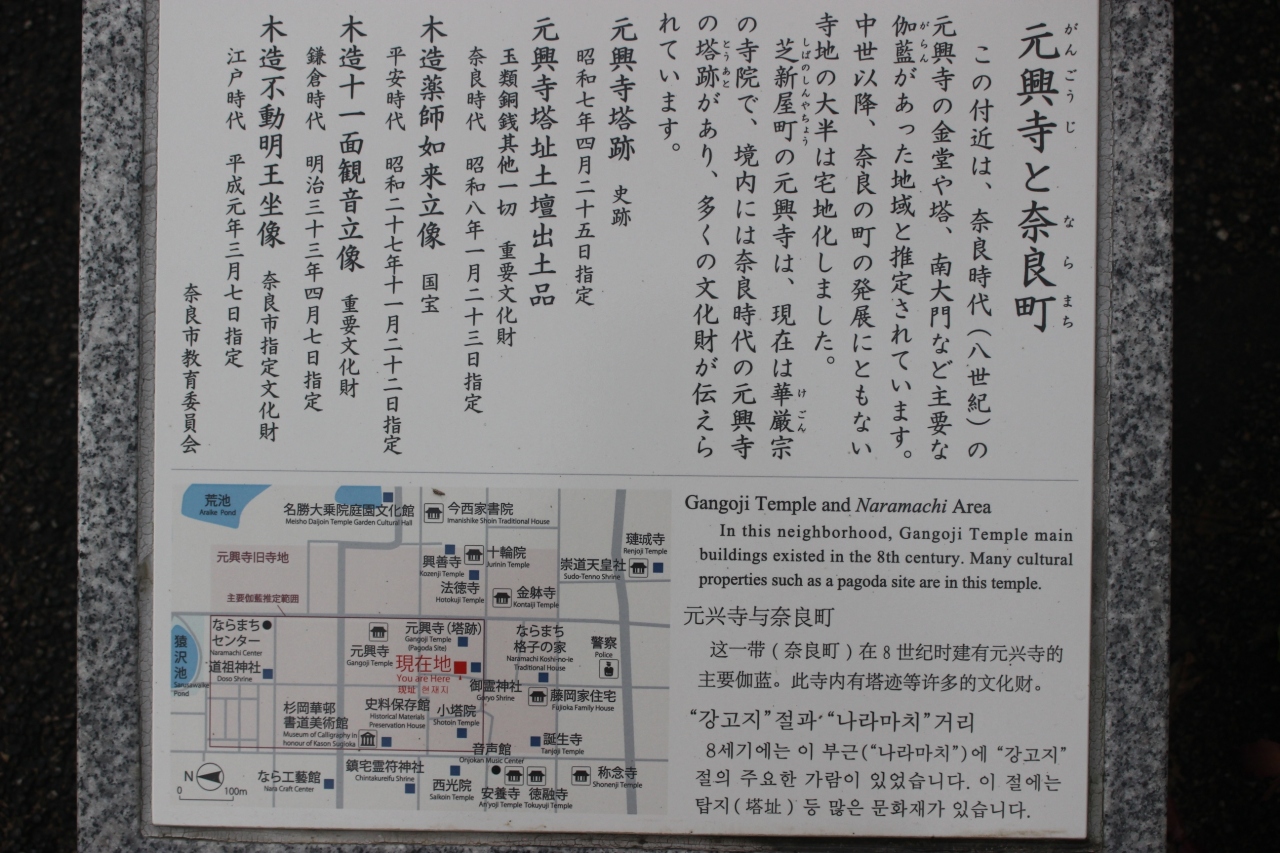 元興寺と奈良町
がんごうじ
ならまち
この付近は、奈良時代（八世紀）の
元興寺の金堂や塔、南大門など主要な
伽藍があった地域と推定されています。
がらん
中世以降、奈良の町の発展にともない
寺地の大半は宅地化しました。
芝新屋町の元興寺は、現在は華厳宗
しばのしんやちょう
けごん
の寺院で、境内には奈良時代の元興寺
の塔跡があり、多くの文化財が伝えら
とうあと
れています。
元興寺塔跡 史跡
昭和七年四月二十五日指定
元興寺塔址土壇出土品
玉類銅銭其他一切 重要文化財
奈良時代 昭和八年一月二十三日指定
木造薬師如来立像 国宝
平安時代 昭和二十七年十一月二十二日指定
木造十一面観音立像 重要文化財
鎌倉時代 明治三十三年四月七日指定
木造不動明王坐像 奈良市指定文化財
江戸時代 平成元年三月七日指定
奈良市教育委員会
荒池
Araike Pond
名勝大乗院庭園文化館
Meisho Daijoin Temple Garden Cultural Hall
今西家書院
Imanishike Shoin Traditional House
元興寺旧寺地
興善寺
Kozenji Temple
十輪院
Jurinin Temple
崇道天皇社
Sudo-Tenno Shrine
璉珹寺
Renjoji Temple
法徳寺
Hotokuji Temple
金躰寺
Kontaiji Temple
主要伽藍推定範囲
ならまち
センター
Naramachi Center
猿沢池
Sarusawaike
Pond
道祖神社
Doso Shrine
元興寺
Gangoji Temple
元興寺（塔跡）
Gangoji Temple
(Pagoda Site)
現在地
You are Here
现址 현재지
ならまち
格子の家
Naramachi Koshi-no-ie
Traditional House
警察
Police
御霊神社
Goryo Shrine
藤岡家住宅
Fujioka Family House
杉岡華邨
書道美術館
Museum of Calligraphy in
honour of Kason Sugioka
史料保存館
Historical Materials
Preservation House
小塔院
Shotoin Temple
音声館
Onjokan Music Center
誕生寺
Tanjoji Temple
N
0 100m
なら工藝館
Nara Craft Center
鎮宅霊符神社
Chintakureifu Shrine
西光院
Saikoin Temple
安養寺
An'yoji Temple
徳融寺
Tokuyuji Temple
称念寺
Shonenji Temple
Gangoji Temple and Naramachi Area
In this neighborhood, Gangoji Temple main
buildings existed in the 8th century. Many cultural
properties such as a pagoda site are in this temple.
元兴寺与奈良町
这一带（奈良町）在8世纪时建有元兴寺的
主要伽蓝。此寺内有塔迹等许多的文化财。
“강고지”절과 “나라마치”거리
8세기에는 이 부근(“나라마치”)에 “강고지”
절의 주요한 가람이 있었습니다. 이 절에는
탑지(塔址) 등 많은 문화재가 있습니다.